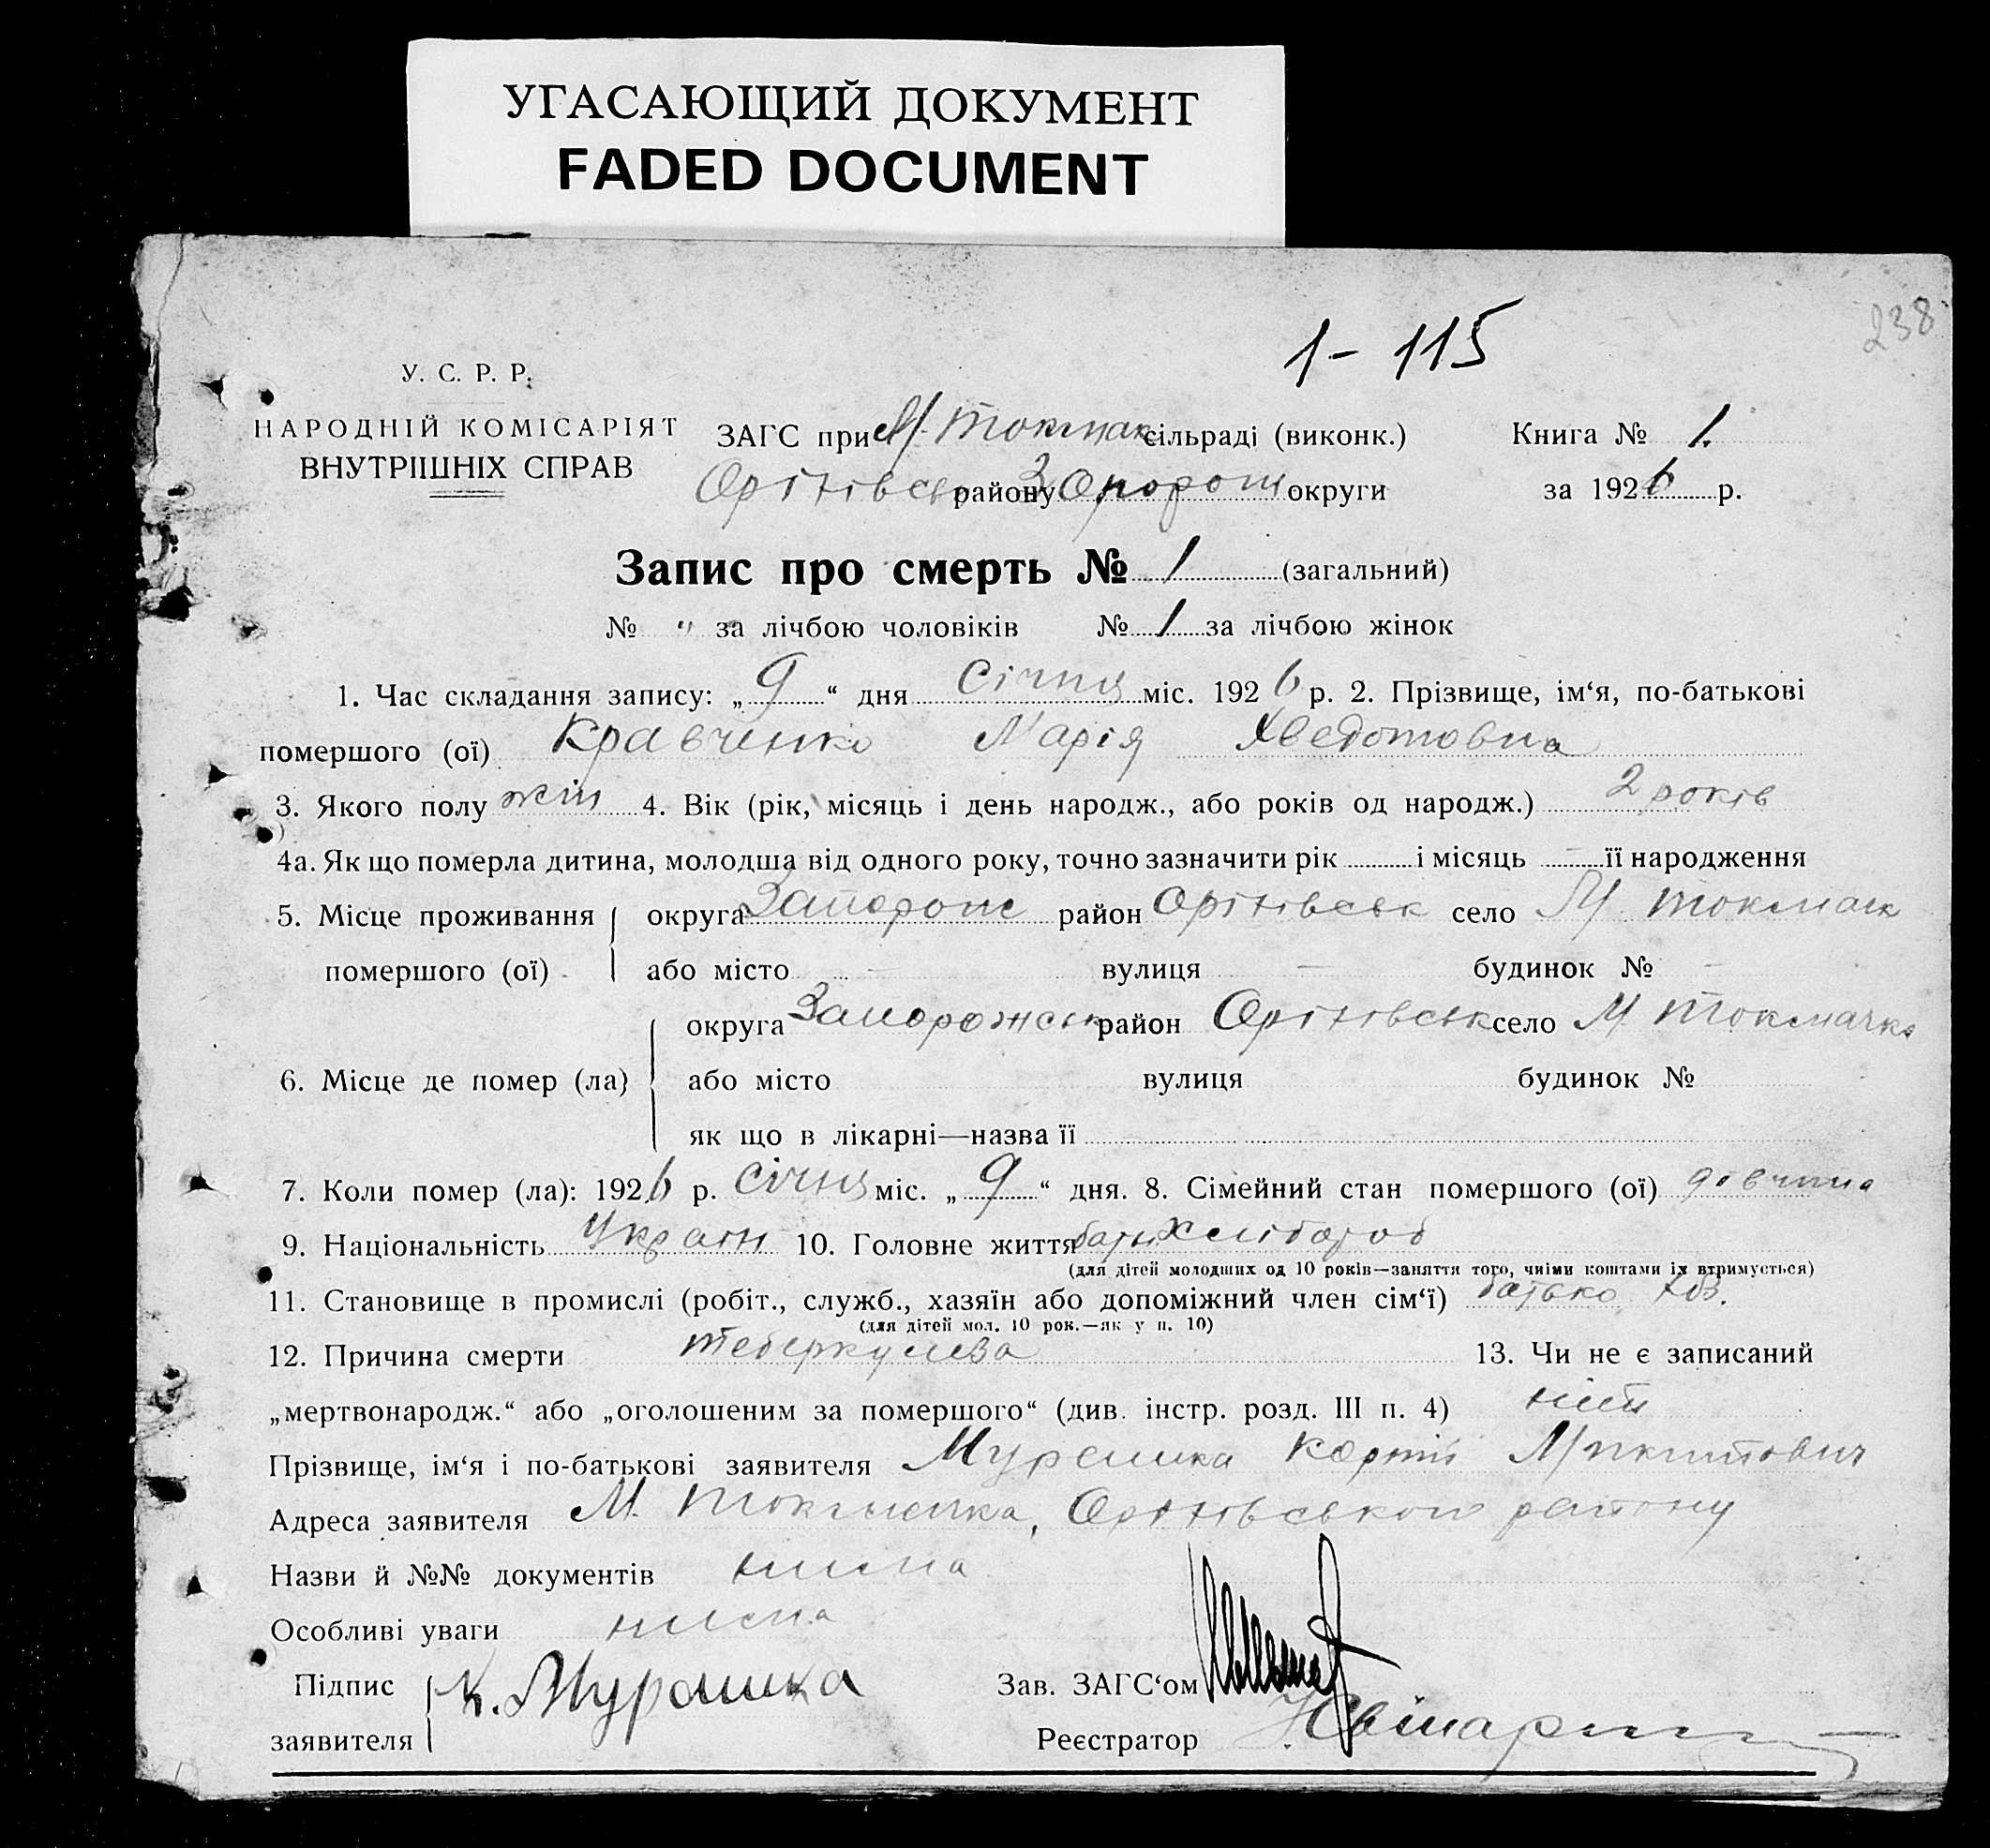 УГАСАЮЩИЙ ДОКУМЕНТ
FADED DOCUMENT
238
1-115
У. С. Р. Р.
НАРОДНІЙ КОМІСАРІЯТ
ВНУТРІШНІХ СПРАВ
ЗАГС при М. Токмак сільраді (виконк.)
Книга № 1.
Оріхівськ району Запорож округи
за 1926 р.
Запис про смерть № 1 (загальний)
№ „ за лічбою чоловіків № 1 за лічбою жінок
1. Час складання запису: „9“ дня Січня міс. 1926 р. 2. Прізвище, ім‘я, по-батькові
помершого (ої) Кравченко Марія Хведотовна
3. Якого полу жін 4. Вік (рік, місяць і день народж., або років од народж.) 2 років
4а. Як що померла дитина, молодша від одного року, точно зазначити рік і місяць — її народження
5. Місце проживання округа Запорож район Оріхівськ село М Токмак
помершого (ої) або місто — вулиця — будинок № —
округа Запорожськ район Оріхівськ село М. Токмачка
6. Місце де помер (ла) або місто вулиця будинок №
як що в лікарні—назва її
7. Коли помер (ла): 1926 р. Січня міс. „9“ дня. 8. Сімейний стан помершого (ої) дівчина
9. Національність Україн 10. Головне життя батьк Хлібороб
(для дітей молодших од 10 років—заняття того, чиіми коштами їх втримується)
11. Становище в промислі (робіт., служб., хазяїн або допоміжний член сім‘ї) батько хоз.
(для дітей мол. 10 рок.—як у п. 10)
12. Причина смерти теберкульоза 13. Чи не є записаний
„мертвонародж.“ або „оголошеним за помершого“ (див. інстр. розд. III п. 4) ніт
Прізвище, ім‘я і по-батькові заявителя Мурашка Карпій Микитович
Адреса заявителя М. Токмачка, Оріхівського району
Назви й №№ документів нима
Особливі уваги нима
Підпис заявителя К. Мурашка
Зав. ЗАГС‘ом
Реєстратор